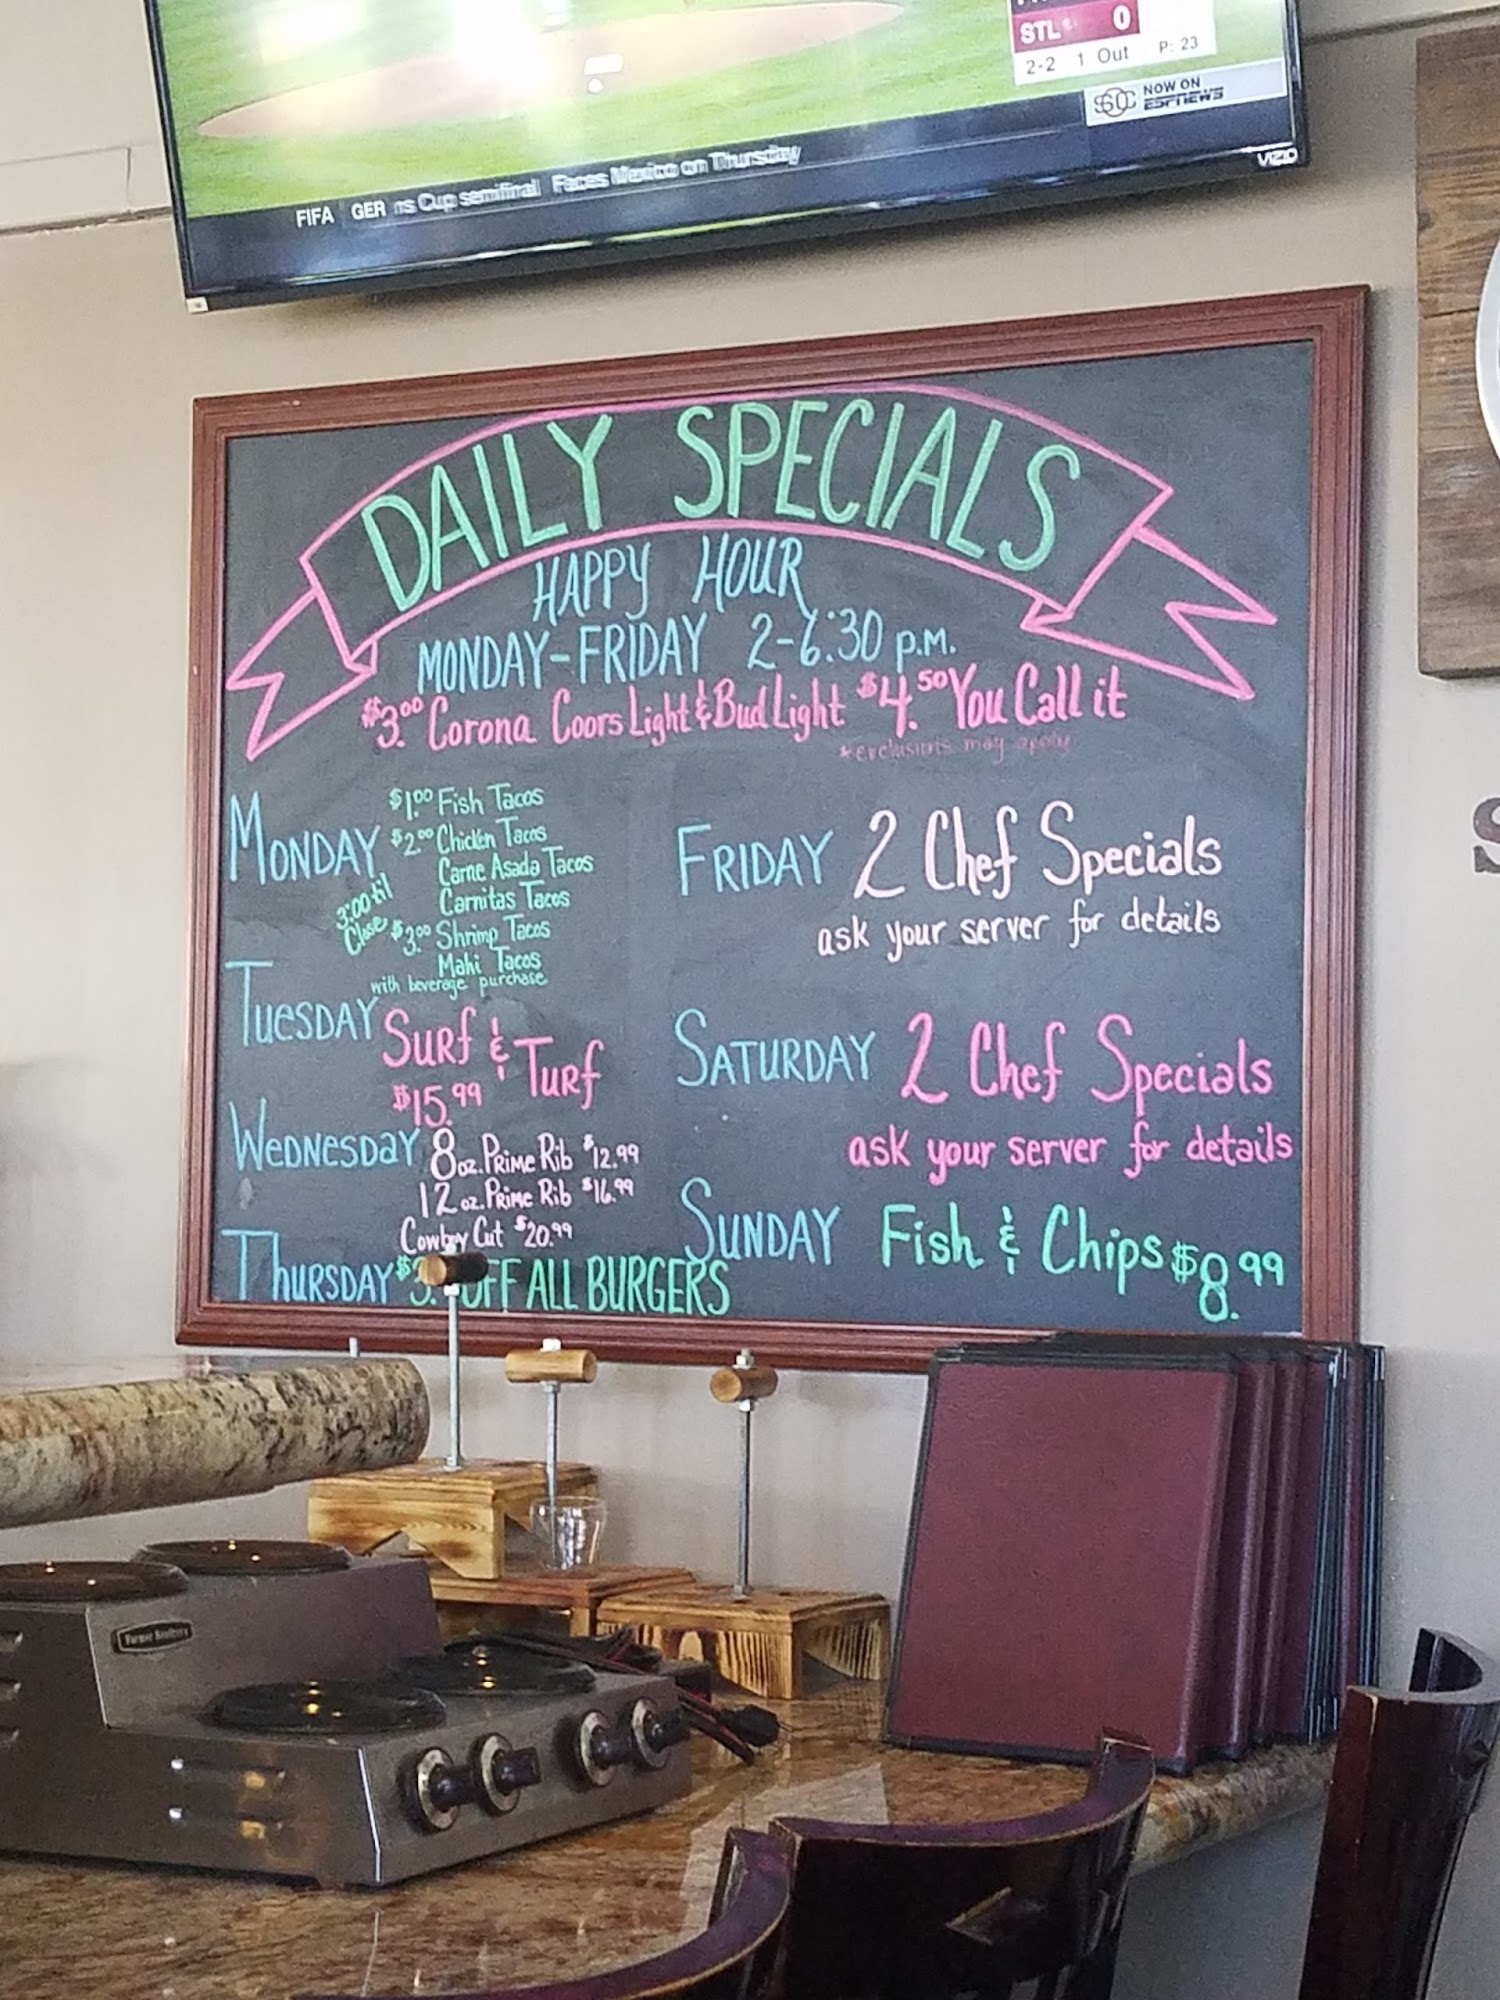 STL 0
2-2 1 Out P: 23
SOC NOW ON ESPNEWS
VIZIO
FIFA GER ns Cup semifinal Faces Mexico on Thursday
DAILY SPECIALS
HAPPY HOUR
MONDAY-FRIDAY 2-6:30 P.M.
$3.00 Corona Coors Light & Bud Light $4.50 You Call it
*exclusions may apply
MONDAY
3:00 til Close
$1.00 Fish Tacos
$2.00 Chicken Tacos
Carne Asada Tacos
Carnitas Tacos
$3.00 Shrimp Tacos
Mahi Tacos
with beverage purchase
TUESDAY Surf & Turf
$15.99
WEDNESDAY 8 oz. Prime Rib $12.99
12 oz. Prime Rib $16.99
Cowboy Cut $20.99
THURSDAY $3. OFF ALL BURGERS
FRIDAY 2 Chef Specials
ask your server for details
SATURDAY 2 Chef Specials
ask your server for details
SUNDAY Fish & Chips $8.99
S